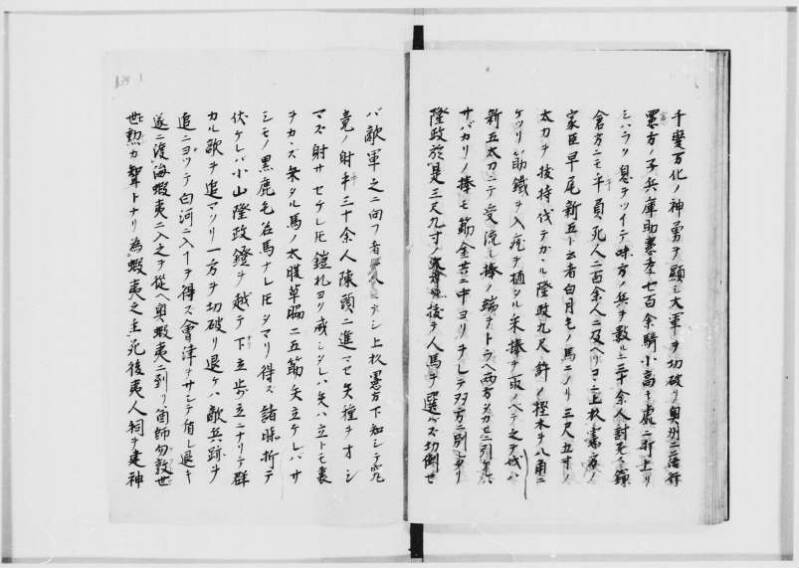 千変万化ノ神勇ヲ顕シ大軍ヲ切破リ奥州ニ落行
黒方ノ子兵庫助憲孝七百余騎小高キ處ニ打上リ
シハラク息ヲツイテ味方ノ兵ヲ數ルニ三十余人討死ス鎌
倉方ニモ手負死人二百余人ニ及ヘリコヽニ上杦憲方ノ
家臣早尾新五ト云者白月毛ノ馬ニノリ三尺五寸ノ
太刀ヲ抜持伐テカヽル隆政九尺許ノ樫木ヲ八角ニ
ケツリ筋鐵ヲ入疣ヲ植タル来捧ヲ取ノベテ之ヲ戓ハ
新五太刀ニテ受流シ捧ノ端ヲトラヘ両方タカヒニ引
サバカリノ捧モ筋金共ニ中ヨリチレテ双方ニ別レタリ
隆政於是三尺九寸ノ後ヲ人馬ヲ選バズ切倒セ
バ敵軍之ニ向フ者ナシ上杦黒方下知シテ究
竟ノ射手三十余人陳頭ニ進マセ矢種ヲオシ
マズ射サセケレ𪜈鎧札ヨリ戒シタレハ矢ハ立トモ裏
ヲカヽズ乗タル馬ノ太腹草脇ニ五筋矢立ケレバサ
シモノ黒鹿毛名馬ナレ𪜈タマリ得ス諸膝折テ
伏ケレバ小山隆政鐙ヲ越テ下立歩立ニナリテ群
カル敵ヲ追マツリ一方ヲ切破リ退ケハ敵兵跡ヲ
追ニヨツテ白河ニ入ヿヲ得ス會津ヲサシテ有シ退キ
遂ニ渡海蝦夷ニ入之ヲ從ヘ奥蝦夷ニ到リ酋師勿敦世
世𤍠カ聟トナリ為蝦夷之主死後夷人祠ヲ建神